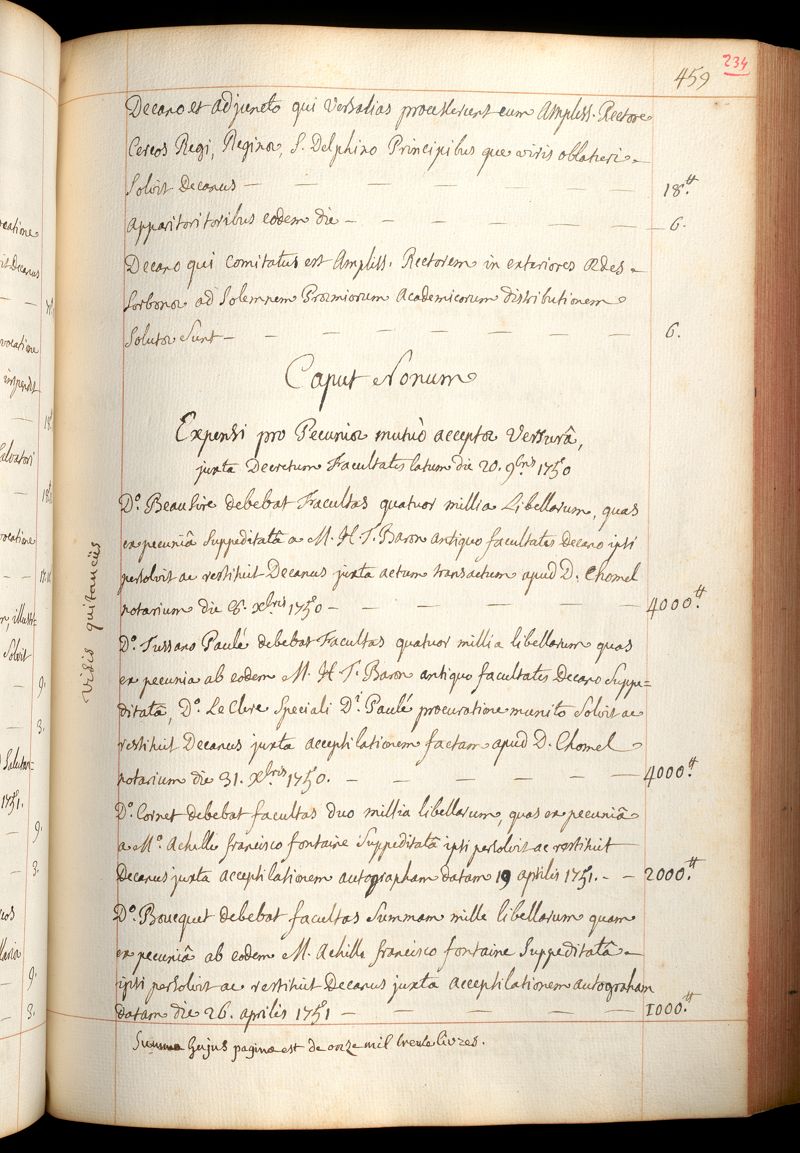 234
459
Decano et adjuncto qui Versalias processerunt cum Ampliss. Rectore
Cereos Regi, Reginæ, S. Delphino Principibus que viris oblaturi
Solvit Decanus — 18.tt
Apparitoritoribus eodem die — 6.
Decano qui Comitatus est Ampliss. Rectorem in exteriores ædes
Sorbonæ ad Solemnem Præmiorum Academicorum distributionem
Solutæ Sunt — 6.
Caput Nonum
Expensi pro Pecuniæ mutuò acceptæ Versurâ,
juxta Decretum Facultatis latum die 20. 9bris 1750
Do. Beausire debebat Facultas quatuor millia Libellarum, quas
ex pecuniâ Suppeditatâ a M. H. T. Baron antiquo facultatis Decano ipsi
persolvit ac restituit Decanus juxta actum transactum apud D. Chomel
notarium die 8. Xbris 1750 — 4000.tt
Do. Tussano Paulé debebat Facultas quatuor millia libellarum quas
ex pecunia ab eodem M. H. T. Baron antiquo facultatis Decano Suppe=
ditatâ, Do. Le Clerc Speciali Di. Paulé procuratione munito Solvit ac
restituit Decanus juxta acceptilationem factam apud D. Chomel
notarium die 31. Xbris 1750. — 4000.tt
Do. Cornet debebat facultas duo millia libellarum, quas ex pecuniâ
a Mo. Achille francisco fontaine Suppeditatâ ipsi persolvit ac restituit
Decanus juxta acceptilationem autographam datam 19 aprilis 1751. — 2000.tt
Do. Boucquet debebat facultas Summam mille libellarum quam
ex pecuniâ ab eodem M. Achille francisco fontaine Suppeditatâ
ipsi persolvit ac restituit Decanus juxta acceptilationem autographam
datam die 26. aprilis 1751 — 1000.tt
Summa hujus paginæ est de onze mil trente livres.
Visis quitanciis